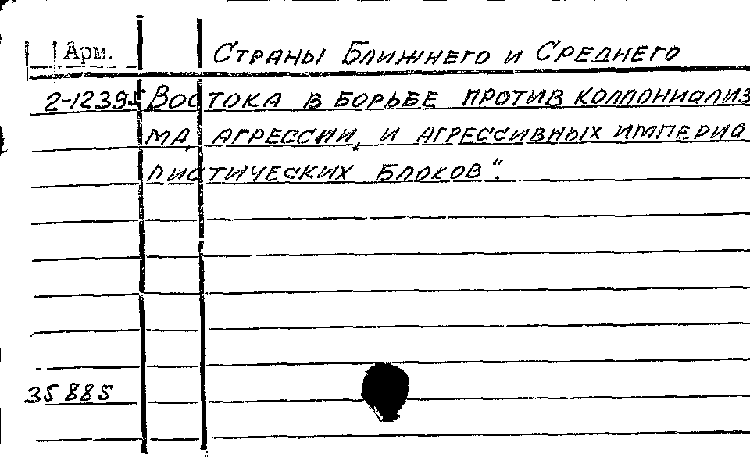 Арм. Страны Ближнего и Среднего
2-12395 Востока в борьбе против колпониализ
ма, агрессии, и агрессивных империа
листических блоков".
35885